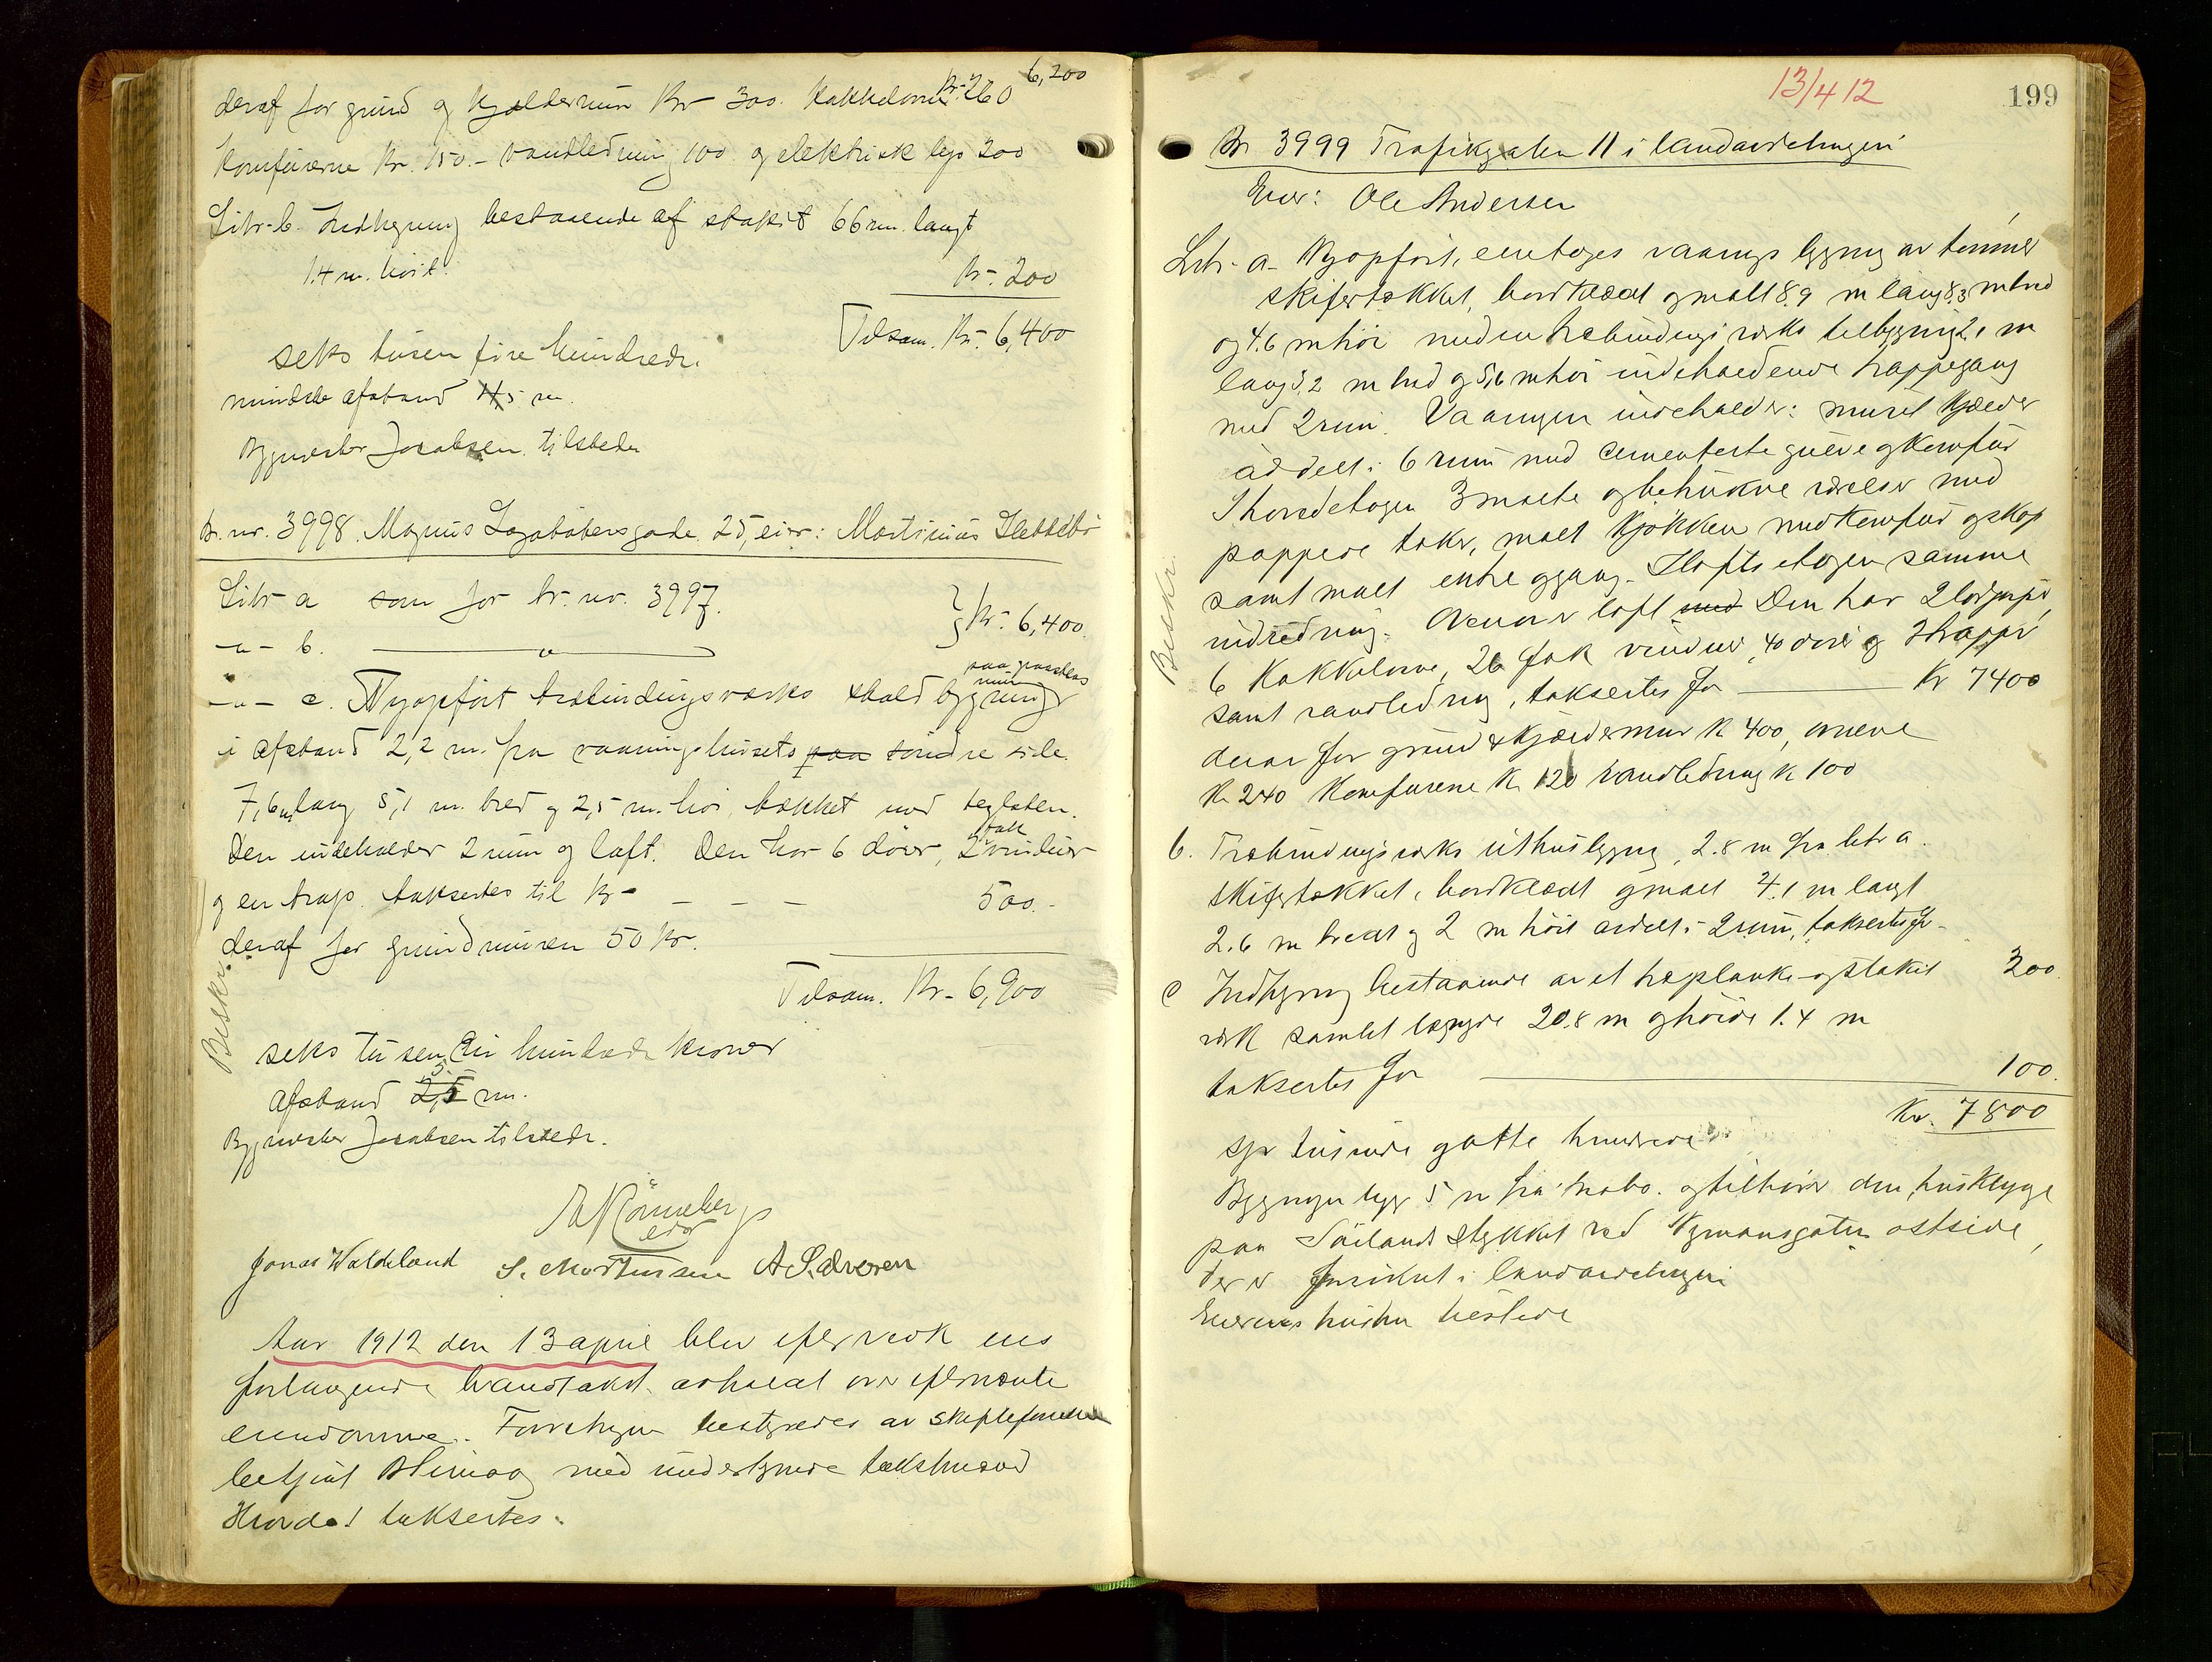 6,200
deraf for grund og kjeldermur Kr 300. Kakkelovne Kr. 260
Komfurerne Kr. 150.- vandledning 100 og elektrisk lys 200
Litr. b. Indhegning bestaaende af stakit 66 m. langt
1.4 m. høit.
Kr. 200
Tilsam. Kr. 6,400
seks tusen fire hundrede.
mindste afstand 5 m.
Bygmester Jacobsen tilstede
Br. nr. 3998. Magnus Lagabøtersgade 25, eier: Martinius Slettebø
Litr a som for br. nr. 3997.
Kr. 6,400.
-"- b. "
paa pudset
mur
-"- c. Nyopført træbindingsværks staldbygning
i afstand 2,2 m. fra vaaningshusets paa søndre side.
7,6 m lang 5,1 m. bred og 2,5 m. høi, tækket med teglsten.
Den indeholder 2 rum og loft. Den har 6 dører, 2 fak vinduer
og en trap. taksertes til Kr - - - - 500.-
deraf for grundmuren 50 Kr.
Beskr.
Tilsam. Kr. 6,900
seks tusen ni hundrede kroner
afstand 2,5 m.
Bygmester Jacobsen tilstede.
Jonas Waldeland S. Mortensen A. Salvesen
Aar 1912 den 13 april blev efter vedk eies
forlangende brandtakst avholdt over efternævnte
eiendomme. Forretningen bestyredes av
med undertegnede takstmænd
Hvorda! taksertes.
13/4 12
199
Br 3999 Trafikgaten 11 i landavdelingen
Eier: Ole Andersen
Litr. a. Nyopført, enetages vaaningsbygning av tømmer
skifertækket, bordklædt og malt 8.9 m lang 8.3 m bred
og 4.6 m høi med en træbindingsværks tilbygning 2,1 m
lang 3,2 m bred og 5,6 m høi indeholdende trappegang
med 2 rum. Vaaningen indeholder: muret kjælder
avdelt i 6 rum med cementerte gulve og komfur
I hovedetagen 3 malte og betrukne værelser med
pappede taker, malt kjøkken med komfur og skap
samt malt entre og gang. I loftsetagen samme
indredning. Ovenover loft med Den har 2
6 kakkelovne, 26 fak vinduer, 40 dører og 3 trapper
samt vandledning, taksertes for Kr 7400
derav for grund & kjældermur Kr 400, ovnene
Kr 240 Komfurene Kr 120 vandledning Kr 100
Beskr.
b. Træbindingsværks uthusbygning, 2.8 m fra litr a.
skifertækket, bordklædt og malt 4.1 m langt
2.6 m bredt og 2 m høit avdelt i 2 rum, taksertes for
300.
c Indhegning bestaaende av et træplanke- og stakit
verk samlet længde 20.8 m og høide 1.4 m
taksertes for 100.
Kr. 7800
syv tusinde og otte hundrede
Bygningen ligger 5 m fra nabo. og tilhører den husklynge
paa Sølands stykket ved Nymansgatens østside,
der er forsikret i landavdelingen
Eierens hustru tilstede